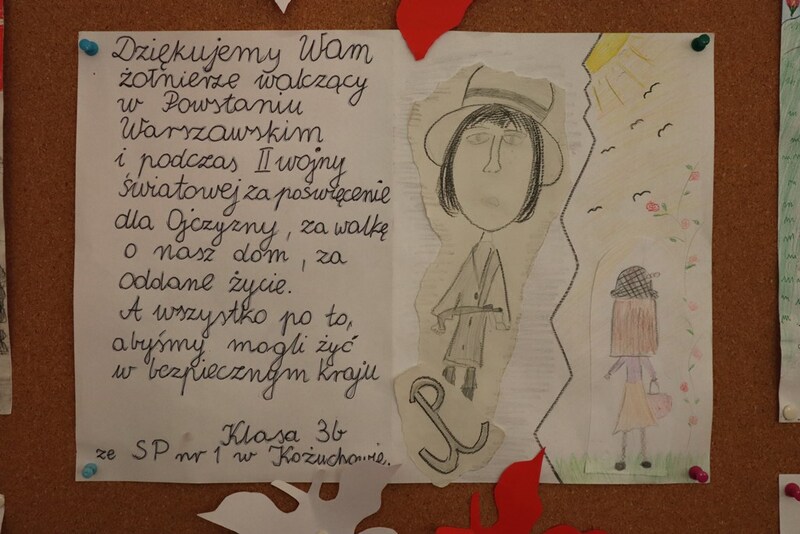 Dziękujemy Wam
żołnierze walczący
w Powstaniu
Warszawskim
i podczas II wojny
światowej za poświęcenie
dla Ojczyzny, za walkę
o nasz dom, za
oddane życie.
A wszystko po to,
abyśmy mogli żyć
w bezpiecznym kraju
Klasa 3b
ze SP nr 1 w Kożuchowie.